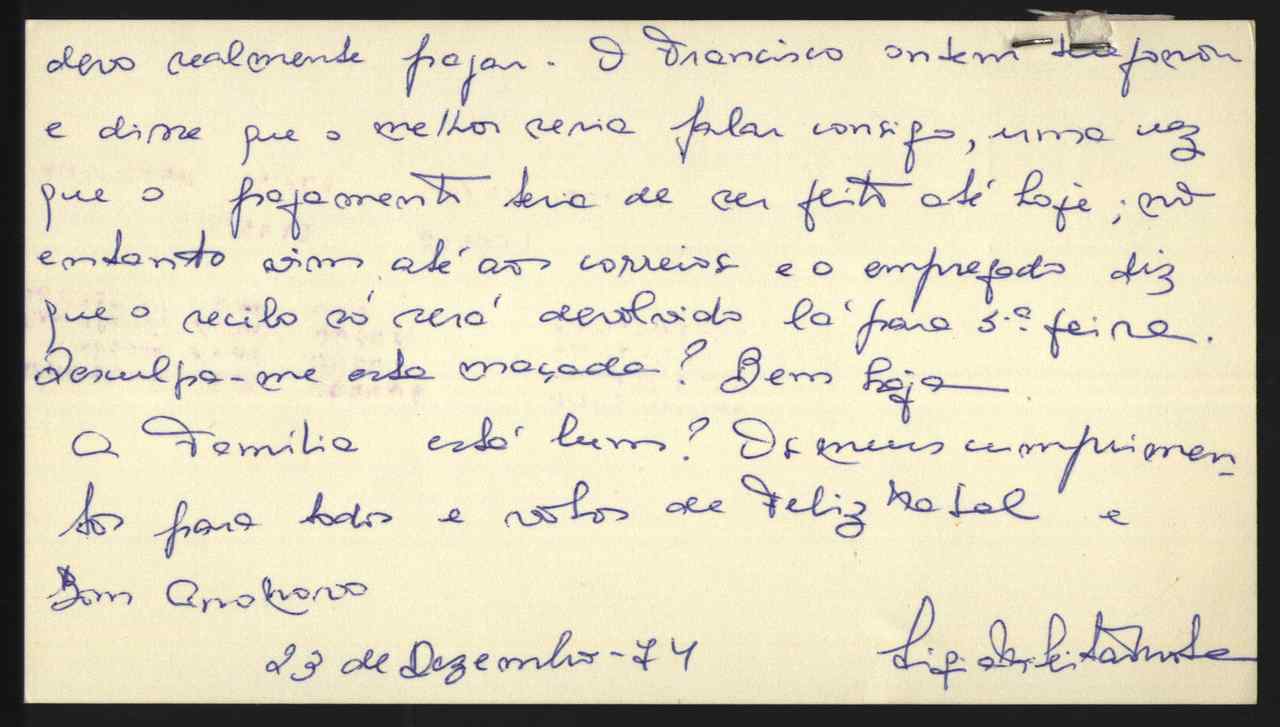 devo realmente pagar. O Francisco ontem telefonou
e disse que o melhor seria falar consigo, uma vez
que o pagamento teria de ser feito até hoje; no
entanto vim até aos correios e o empregado diz
que o recibo só será devolvido lá para 5.ª feira.
Desculpa-me esta maçada? Bem haja
A Família está bem? Os meus cumprimen-
tos para todos e votos de Feliz Natal e
Bom Ano Novo
23 de Dezembro-74